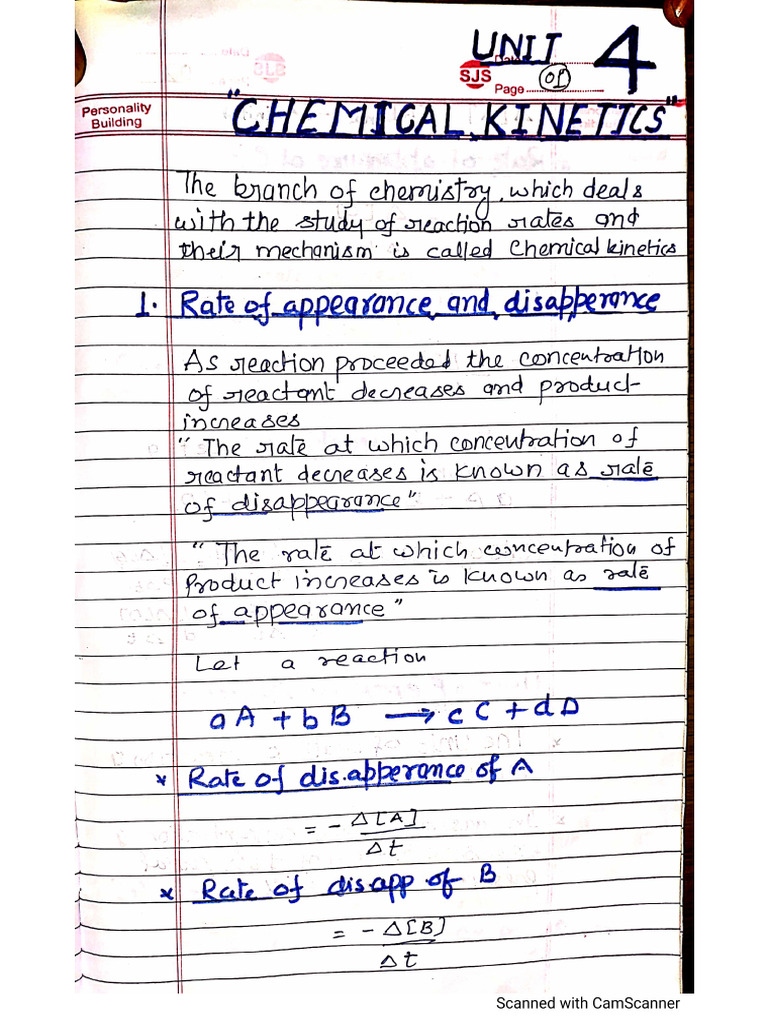 UNIT 4
Date
SJS
Page 01
Personality
Building
"CHEMICAL KINETICS"
The branch of chemistry, which deals
with the study of reaction rates and
their mechanism is called Chemical kinetics
1. Rate of appearance and disapperance
As reaction proceeded the concentration
of reactant decreases and product
increases
"The rate at which concentration of
reactant decreases is known as rate
of disappearance"
"The rate at which concentration of
Product increases is known as rate
of appearance"
Let a reaction
aA + bB → cC + dD
* Rate of dis.apperance of A
= - Δ[A]
Δt
* Rate of disapp of B
= - Δ[B]
Δt
Scanned with CamScanner